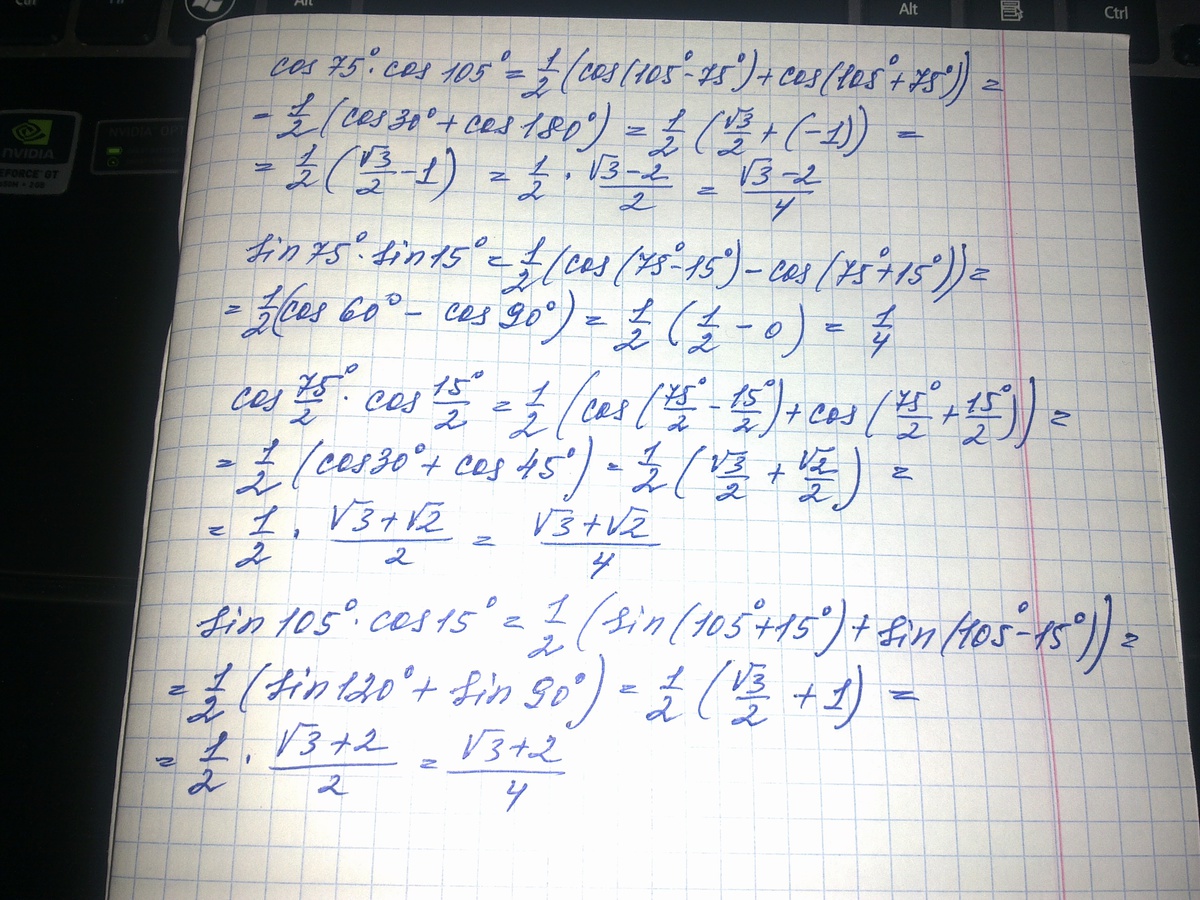 Ctrl
Alt
Alt
Ctrl
NVIDIA
GEFORCE GT
cos 75° · cos 105° = 1/2 (cos(105° - 75°) + cos(105° + 75°)) =
- 1/2 (cos 30° + cos 180°) = 1/2 (√3/2 + (-1)) =
= 1/2 (√3/2 - 1) = 1/2 · (√3 - 2)/2 = (√3 - 2)/4
sin 75° · sin 15° = 1/2 (cos (75° - 15°) - cos (75° + 15°)) =
= 1/2 (cos 60° - cos 90°) = 1/2 (1/2 - 0) = 1/4
cos 75°/2 · cos 15°/2 = 1/2 (cos (75°/2 - 15°/2) + cos (75°/2 + 15°/2)) =
= 1/2 (cos 30° + cos 45°) = 1/2 (√3/2 + √2/2) =
= 1/2 · (√3 + √2)/2 = (√3 + √2)/4
sin 105° · cos 15° = 1/2 (sin (105° + 15°) + sin (105° - 15°)) =
= 1/2 (sin 120° + sin 90°) = 1/2 (√3/2 + 1) =
= 1/2 · (√3 + 2)/2 = (√3 + 2)/4